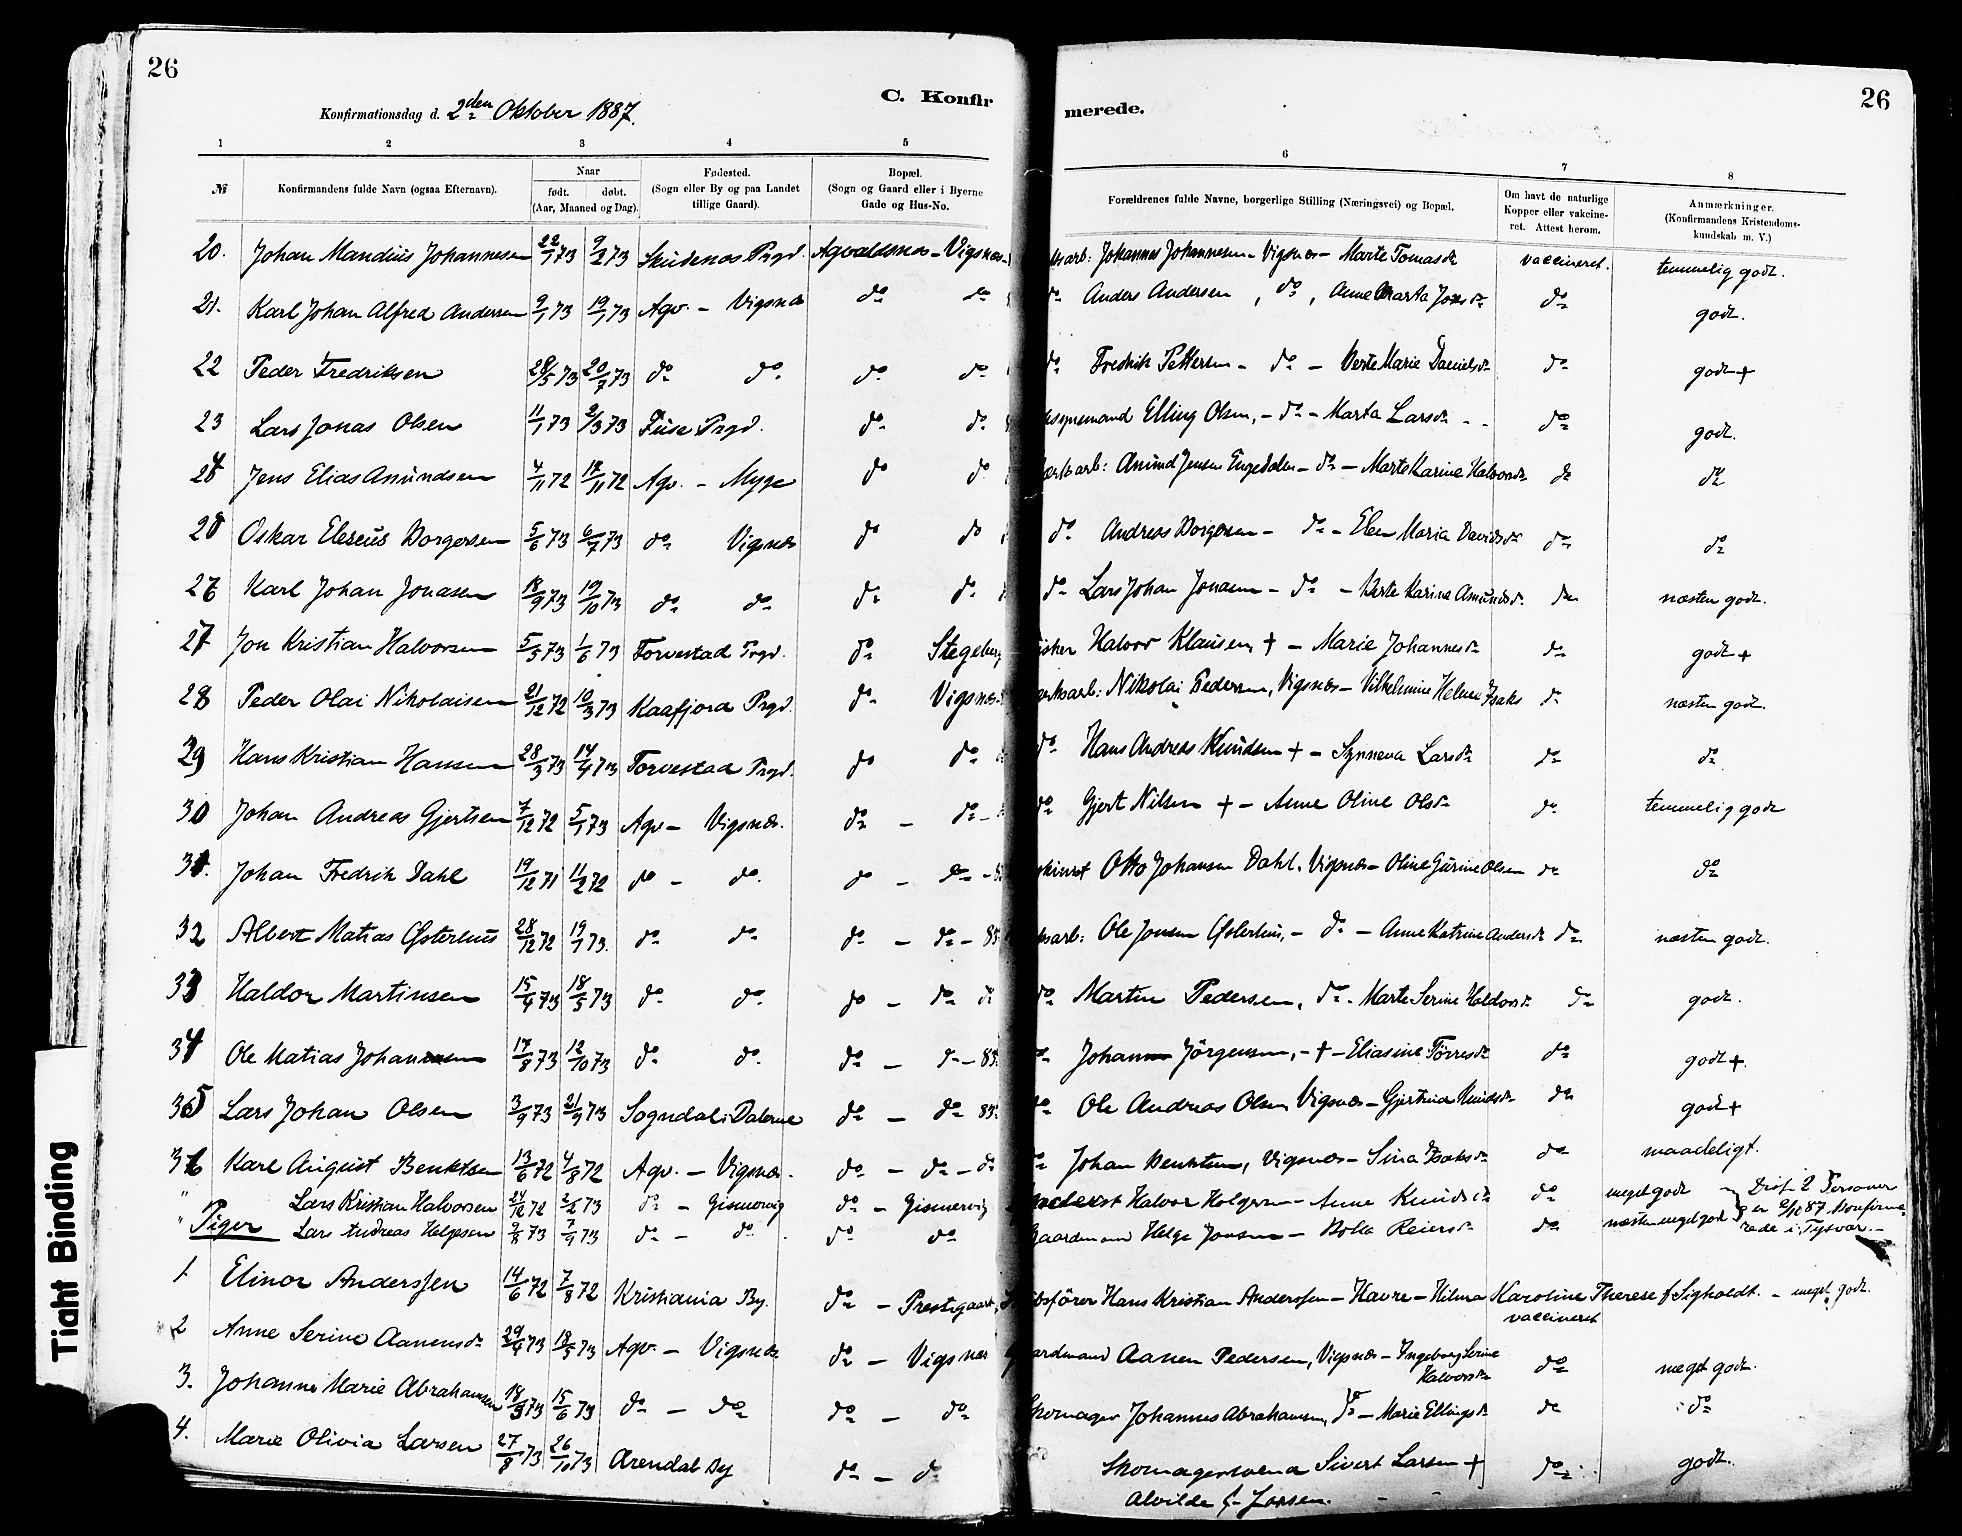 26
C. Konfir
merede.
26
Konfirmationsdag d. 2den Oktober 1887.
1 2 3 4 5 6 7 8
№
Konfirmandens fulde Navn (ogsaa Efternavn).
Naar
født. døbt.
(Aar, Maaned og Dag).
Fødested.
(Sogn eller By og paa Landet
tillige Gaard).
Bopæl.
(Sogn og Gaard eller i Byerne
Gade og Hus-No.
Forældrenes fulde Navne, borgerlige Stilling (Næringsvei) og Bopæl.
Om havt de naturlige
Kopper eller vakcine-
ret. Attest herom.
Anmærkninger.
(Konfirmandens Kristendoms-
kundskab m. V.)
20. Johan Mandius Johannesen 22/1 73 9/2 73 Skudenæs Prgd. Agvaldsnæs - Vigsnæs arb: Johannes Johannesen - Vigsnæs - Marte Tomasd. vaccineret. temmelig godt.
21. Karl Johan Alfred Andersen 9/1 73 19/1 73 Agv. - Vigsnæs do do do Anders Andersen, do, Anne Marta do godt.
22 Peder Fredriksen 28/5 73 20/7 73 do do. do do do Fredrik Pettersen - do - Berte Marie Danielsd. do godt +
23 Lars Jonas Olsen 11/1 73 2/3 73 Fuse Prgd. do do Elling Olsen, - do - Marta Larsd. - - do godt.
24 Jens Elias Amundsen 4/11 72 17/11 72 Agv. - Myge do do arb: Amund Jensen Engedalen - do - Marte Karine Halvorsd. do do
Oskar Eleseus Borgersen 5/6 73 6/7 73 do Vigsnæs do do do Andreas Borgersen - do - Elen Maria Davidsd. do do
26 Karl Johan Jonasen 18/9 73 19/10 73 do do do do do Lars Johan Jonasen - do - Berte Karine Amundsd. do næsten godt.
27 Jon Kristian Halvorsen 5/5 73 1/6 73 Torvestad Prgd. do Stegeberg Halvor Klausen, + - Marie Johannesd. do godt +
28 Peder Olai Nikolaisen 21/12 72 10/3 73 Kaafjord Prgd. do Vigsnæs arb: Nikolai Pedersen, Vigsnæs - Vilhelmine Helene Isaks do næsten godt.
29 Hans Kristian Hansen 28/3 73 14/4 73 Torvestad Prgd. do do do Hans Andreas Knudsen + - Synneva Larsd. do do
30 Johan Andreas Gjertsen 7/12 72 5/1 73 Agv - Vigsnæs. do - do - do Gjert Nilsen + - Anne Oline Olsd. do temmelig godt
31. Johan Fredrik Dahl 19/12 71 11/2 72 do - do. do - do - Otto Johansen Dahl, Vigsnæs - Oline Gurine Olsen do do
32 Albert Matias Østerhus 28/12 72 19/1 73. do do do - do - 85 arb: Ole Jonsen Østerhus, - do - Anne Katrine Andersd. do næsten godt.
33 Haldor Martinsen 15/4 73 18/5 73 do do. do - do do do Martin Pedersen, do - Marte Serine Haldorsd. do godt.
34 Ole Matias Johannesen 17/8 73 12/10 73 do do. do - do - 85 do Johan Jörgensen, - + - Eliasine Törresd. do godt +.
35 Lars Johan Olsen 3/9 73 21/9 73 Sogndal i Dalerne do - do 85 do Ole Andreas Olsen Vigsnæs - Gjertine Knudsd. do godt +
36 Karl August Benktsen 13/6 72 4/8 72 Agv. - Vigsnæs. do - do - do do Johan Benktsen, Vigsnæs - Sina Isaksd. do maadeligt.
" Lars Kristian Halvorsen 24/12 72 2/2 73 do - Gismervig do - Gismervig Halvor Holgersen - Anne Knudsd. do meget godt Disse 2 Personer
" Lars Andreas Helgesen 9/8 73 7/9 73 do - do do do Gaardmand Helge Jonsen - Reiersd. do næsten meget godt er 2/10 87 konfirme-
rede i Tysvær. -
Piger
1 Elinor Anderssen 14/6 72 7/8 72 Kristiania By. do - Prestegaard, Skibsfører Hans Kristian Anderssen - Havre - Hilma Karoline Therese f. Sigholdt. - meget godt.
vaccineret
2 Anne Serine Aanensd. 29/4 73 18/5 73 Agv. - Vigsnæs do - Vigsnæs Gaardmand Aanen Pedersen, Vigsnæs - Ingeborg Serine
Halvorsd. do meget godt.
3. Johanne Marie Abrahamsen 18/3 73 15/6 73 do - do do - do Skomager Johannes Abrahamsen, do - Marie Ellingsd. do do
4. Marie Olivia Larsen 27/8 73 26/10 73 Arendal By do - do Sivert Larsen + do godt.
Alvilde f. Jonsen. - -
Tight Binding